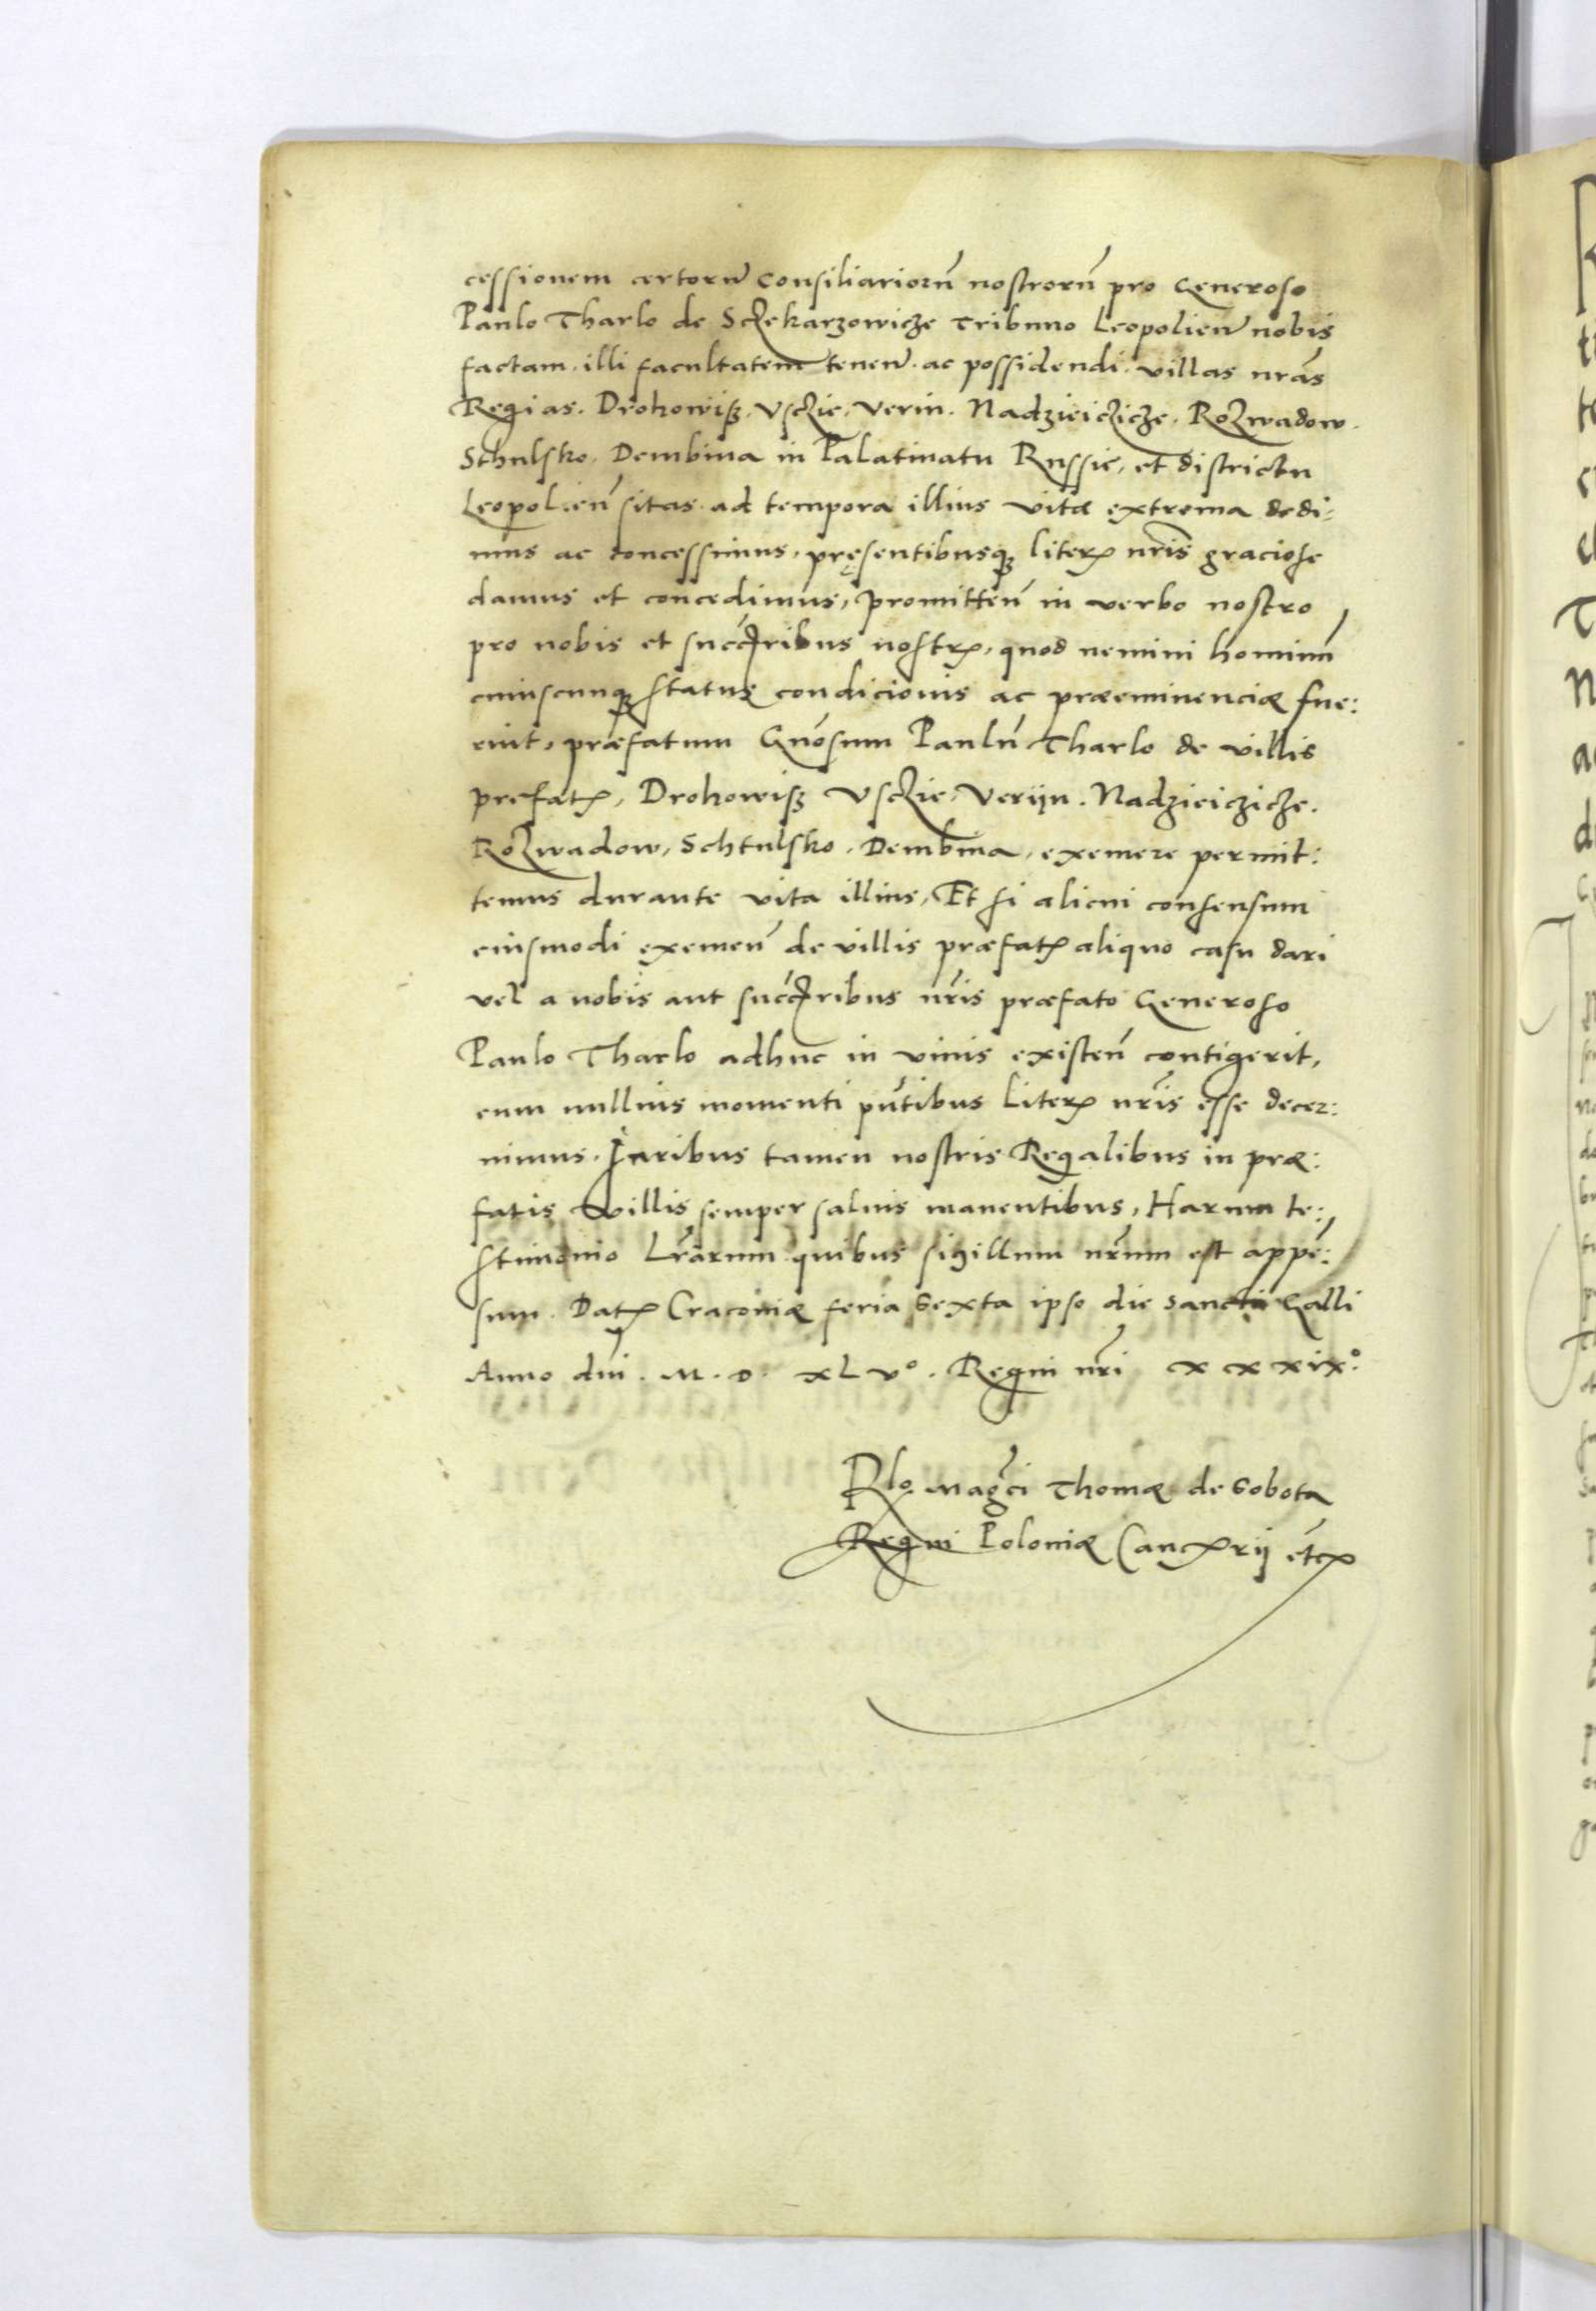 cessionem certorũ consiliariorũ nostrorũ pro Generoso
Paulo Tharlo de Sczekarzowicze Tribuno Leopolień nobis
factam illi facultatem teneń ac possidendi villas nrãs
Regias. Drohowisz, Usczie, Verin. Nadzieiczicze. Rozwadow.
Sthulsko. Dembina in Palatinatu Russie, et districtu
Leopolień sitas ad tempora illius vitæ extrema dedi-
mus ac concessimus, pręsentibusqȝ literꝭ nrĩs graciose
damus et concedimus, promitteñ in verbo nostro
pro nobis et succribus nostrꝭ, quod nemini hominũ
cuiuscunqȝ status condicionis ac præeminenciæ fue:
rint, præfatum Gnõsum Paulũ Tharlo de villis
prefatꝭ, Drohowisz Usczie, Veriin. Nadzieiczicze.
Rozwadow, Schtulsko. Dembina, exemere permit:
temus durante vita illius, Et si alicui consensum
eiusmodi exemeñ de villis præfatꝭ aliquo casu dari
vel a nobis aut succribus nrĩs præfato Generoso
Paulo Tharlo adhuc in vivis existeñ contigerit,
eum nullius momenti pñtibus literꝭ nrĩs esse decer:
nimus. Iuribus tamen nostris Regalibus in præ:
fatis villis semper salvis manentibus, Harum te:
stimonio Lrãrum quibus sigillum nrũm est appẽ:
sum. Datꝭ Cracoviæ feria sexta ipso die sancti Galli
Anno dnĩ. M. D. XLV°. Regni nrĩ XXXIX°.
Rlo magcĩ Thomæ de Sobota
Regni Poloniæ Cancrij etcꝭ